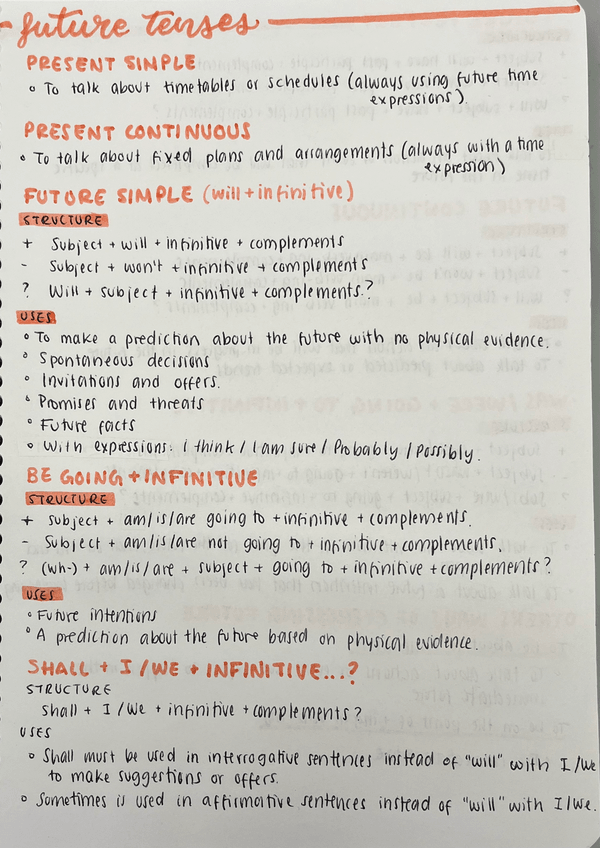 future tenses
PRESENT SIMPLE
° To talk about timetables or schedules (always using future time
expressions)
PRESENT CONTINUOUS
• To talk about fixed plans and arrangements (always with a time
expression)
FUTURE SIMPLE (will + infinitive)
STRUCTURE
+ Subject + will + infinitive + complements
- Subject + won't + infinitive + complements
? Will + subject + infinitive + complements.?
USES
° To make a prediction about the future with no physical evidence.
° Spontaneous decisions
° Invitations and offers.
° Promises and threats
° Future facts
° With expressions: I think / I am sure / Probably / Possibly.
BE GOING + INFINITIVE
STRUCTURE
+ Subject + am/is/are going to + infinitive + complements.
- Subject + am/is/are not going to + infinitive + complements.
? (wh-) + am/is/are + subject + going to + infinitive + complements?
USES
° Future intentions
° A prediction about the future based on physical evidence.
SHALL + I/WE + INFINITIVE...?
STRUCTURE
Shall + I/We + infinitive + complements?
USES
° Shall must be used in interrogative sentences instead of "will" with I/We
to make suggestions or offers.
° Sometimes is used in affirmative sentences instead of "will" with I/We.